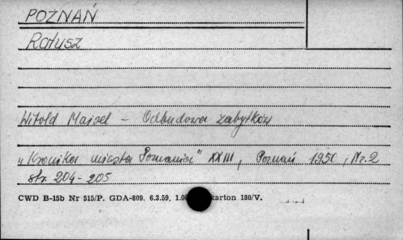 POZNAŃ
Ratusz
Witold Maisel - Odbudowa zabytków
"Kronika miasta Poznania" XXIII, Poznań 1950, Nr. 2
str. 204-205
CWD B-15b Nr 515/P. GDA-809. 6.3.59, 1.0 karton 190/V.